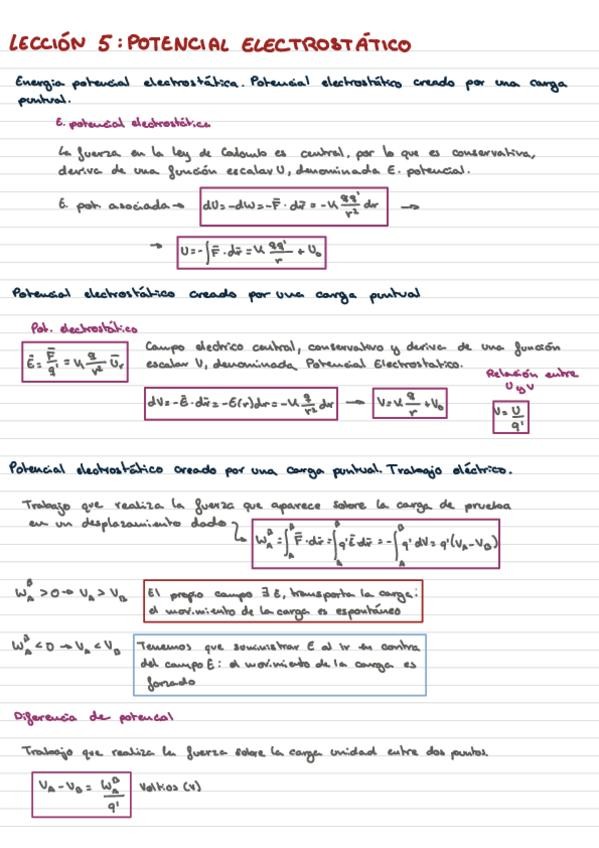 LECCIÓN 5: POTENCIAL ELECTROSTÁTICO
Energía potencial electrostática. Potencial electrostático creado por una carga
puntual.
E. potencial electrostática
La fuerza en la ley de Coulomb es central, por lo que es conservativa,
deriva de una función escalar U, denominada E. potencial.
E. pot. asociada → dU = -dW = -F̄ · dr̄ = -K qq'/r² dr →
→ U = -∫F̄ · dr̄ = K qq'/r + U₀
Potencial electrostático creado por una carga puntual
Pot. electrostático
Ē = F̄/q' = K q/r² ūr Campo electrico central, conservativo y deriva de una función
escalar V, denominada Potencial Electrostatico.
Relación entre
U y V
dV = -Ē · dr̄ = -E(r)dr = -K q/r² dr → V = K q/r + V₀ V = U/q'
Potencial electrostático creado por una carga puntual. Trabajo eléctrico.
Trabajo que realiza la fuerza que aparece sobre la carga de prueba
en un desplazamiento dado
W_A^B = ∫_A^B F̄ · dr̄ = ∫_A^B q'Ē dr̄ = -∫_A^B q' dV = q'(V_A - V_B)
W_A^B > 0 → V_A > V_B El propio campo ∃ E, transporta la carga:
el movimiento de la carga es espontáneo
W_A^B < 0 → V_A < V_B Tenemos que suministrar E al ir en contra
del campo E: el movimiento de la carga es
forzado
Diferencia de potencial
Trabajo que realiza la fuerza sobre la carga unidad entre dos puntos.
V_A - V_B = W_A^B/q' Voltios (V)